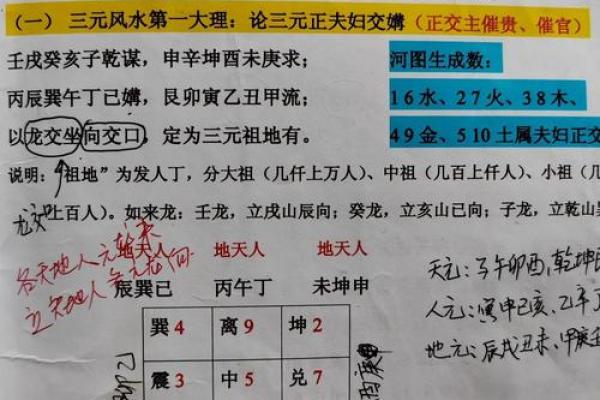 （一） 三元风水第一大理：论三元正夫妇交媾（正交主催贵、催官）
壬戌癸亥子乾谋，申辛坤酉未庚求；
河图生成数：
丙辰巽午丁巳媾，艮卯寅乙丑甲流；
1 6 水、2 7 火、3 8 木、
以龙交坐向交口，定为三元祖地有。
4 9 金、5 10 土属夫妇正交
说明：“祖地”为发人丁，分大祖（几仟上万人）、中祖（几百上仟人）、小祖（几
上百人）。如来龙：壬龙，立戌山辰向；癸龙，立亥山巳向；子龙，立乾山
龙
各天地人元
立天地人
地天人 地天人 地天人
辰巽巳 丙午丁 未坤申
天元：子午卯酉，乾坤
人元：寅申巳亥，乙辛丁
地元：辰戌丑未，甲庚壬
巽 4 离 9 坤 2
震 3 中 5 兑 7